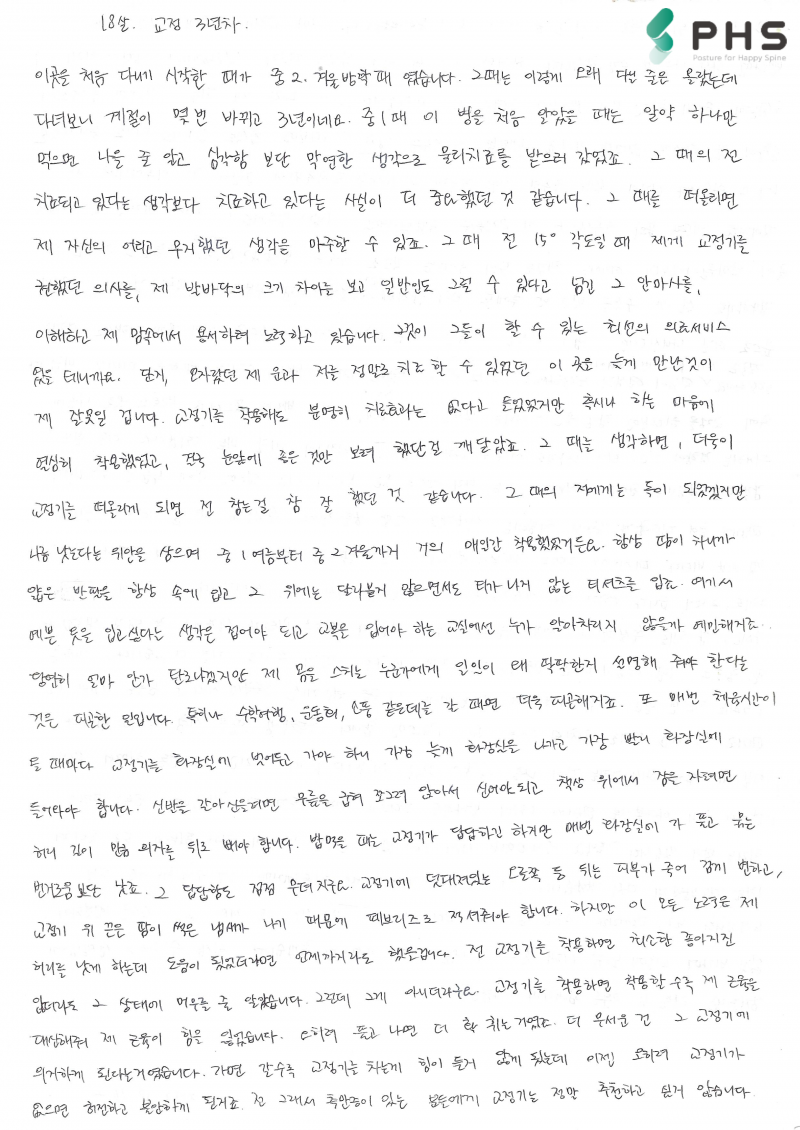 PHS
Posture for Happy Spine
18살. 교정 3년차.
이곳을 처음 다니기 시작한 때가 중2. 겨울방학때 였습니다. 그때는 이렇게 오래 다닐 줄은 몰랐는데
다녀보니 계절이 몇번 바뀌고 3년이네요. 중1때 이 병을 처음 알았을 때는 알약 하나만
먹으면 나을 줄 알고 심각함 보단 막연한 생각으로 물리치료를 받으러 갔었죠. 그 때의 전
치료되고 있다는 생각보다 치료하고 있다는 사실이 더 중요했던 것 같습니다. 그 때를 떠올리면
제 자신의 어리고 무지했던 생각은 마주할 수 있죠. 그때 전 15° 각도일 때 제게 교정기를
권했던 의사를, 제 발바닥의 크기 차이는 보고 일반인도 그럴 수 있다고 넘긴 그 안마사를,
이해하고 제 맘속에서 용서하려 노력하고 있습니다. 그것이 그들이 할 수 있는 최선의 의료서비스
였을 테니까요. 단지, 모자랐던 제 운과 저를 정말로 치료 할 수 있었던 이 곳을 늦게 만난것이
제 잘못일 겁니다. 교정기를 착용해도 분명히 치료효과는 없다고 들었었지만 혹시나 하는 마음에
열심히 착용했었고, 결국 눈앞에 좋은 것만 보려 했단걸 깨달았죠. 그 때는 생각하면, 더욱이
교정기를 떠올리게 되면 전 참는걸 참 잘 했던 것 같습니다. 그 때의 저에게는 독이 되었겠지만
나름 낫는다는 위안을 삼으며 중1여름부터 중2겨울까지 거의 매일간 착용했었거든요. 항상 땀이 차니까
얇은 반팔을 항상 속에 입고 그 위에는 달라붙지 않으면서도 티가나지 않는 티셔츠를 입죠. 여기서
예쁜 옷을 입고싶다는 생각은 접어야 되고 교복은 입어야 하는 교실에선 누가 알아차리지 않을까 예민해지죠.
당연히 얼마 안가 탄로나겠지만 제 몸을 스치는 누군가에게 일일이 왜 딱딱한지 설명해 줘야 한다는
것은 피곤한 일입니다. 특히나 수학여행, 운동회, 소풍 같은데를 갈 때면 더욱 피곤해지죠. 또 매번 체육시간이
들 때마다 교정기를 화장실에 벗어두고 가야 하니 가장 늦게 화장실을 나가고 가장 빨리 화장실에
들어와야 합니다. 신발을 갈아신을려면 무릎을 굽혀 쪼그려 앉아서 신어야되고 책상 위에서 잠을 자려면
허리 길이 만큼 의자를 뒤로 빼야 합니다. 밥먹을 때는 교정기가 답답하긴 하지만 매번 화장실에 가 풀고 묶는
번거로움보단 낫죠. 그 답답함도 점점 무뎌지구요. 교정기에 덧대져있는 오른쪽 등 뒤는 피부가 죽어 검게 변하고,
교정기 위 끈은 땀이 썩은 냄새가 나기 때문에 페브리즈로 적셔줘야 합니다. 하지만 이 모든 노력은 제
허리를 낫게 하는데 도움이 됬었더라면 언제까지라도 했을겁니다. 전 교정기를 착용하면 최소한 좋아지진
않더라도 그 상태에 머무를 줄 알았습니다. 그런데 그게 아니더라구요. 교정기를 착용하면 착용할 수록 제 근육을
대신해줘 제 근육이 힘을 잃었습니다. 오히려 풀고 나면 더 확 휘는거였죠. 더 무서운 건 그 교정기에
의지하게 된다는거였습니다. 가면 갈수록 교정기를 차는게 힘이 들지 않게 됬는데 이젠 오히려 교정기가
없으면 허전하고 불안하게 된거죠. 전 그래서 측만증이 있는 분들에게 교정기는 정말 추천하고 싶지 않습니다.